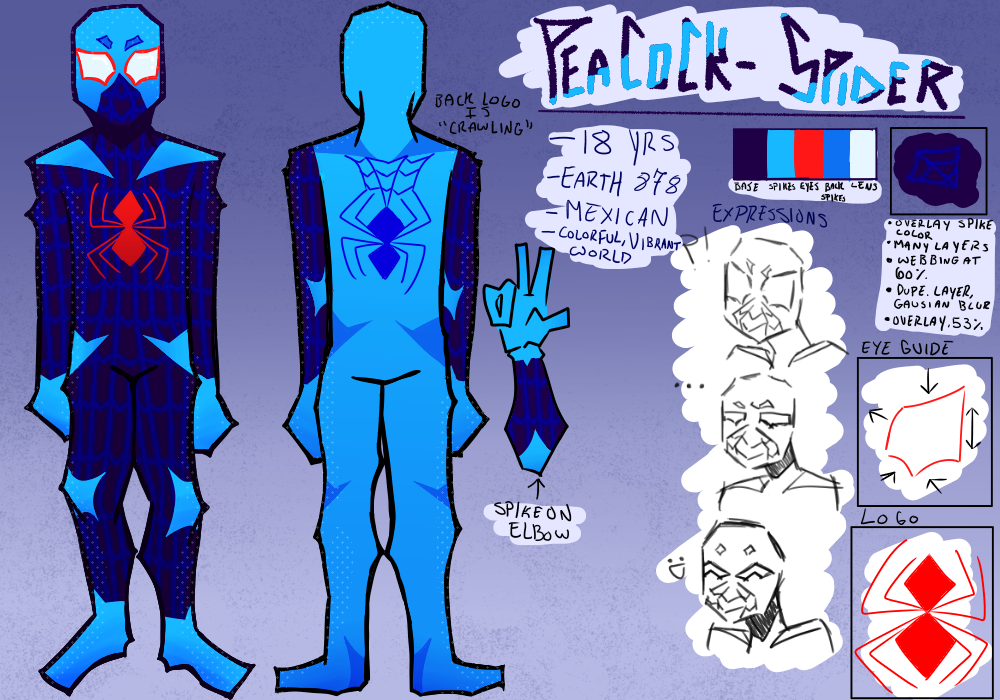 PEACOCK-SPIDER
BACK LOGO
IS
"CRAWLING"
-18 YRS
-EARTH 878
-MEXICAN
-COLORFUL, VIBRANT
WORLD
BASE SPIKES EYES BACK LENS
SPIKES
• OVERLAY SPIKE
COLOR
• MANY LAYERS
• WEBBING AT
60%
• DUPE. LAYER,
GAUSIAN BLUR
• OVERLAY, 53%
EXPRESSIONS
!
....
:D
SPIKE ON
ELBOW
EYE GUIDE
LOGO